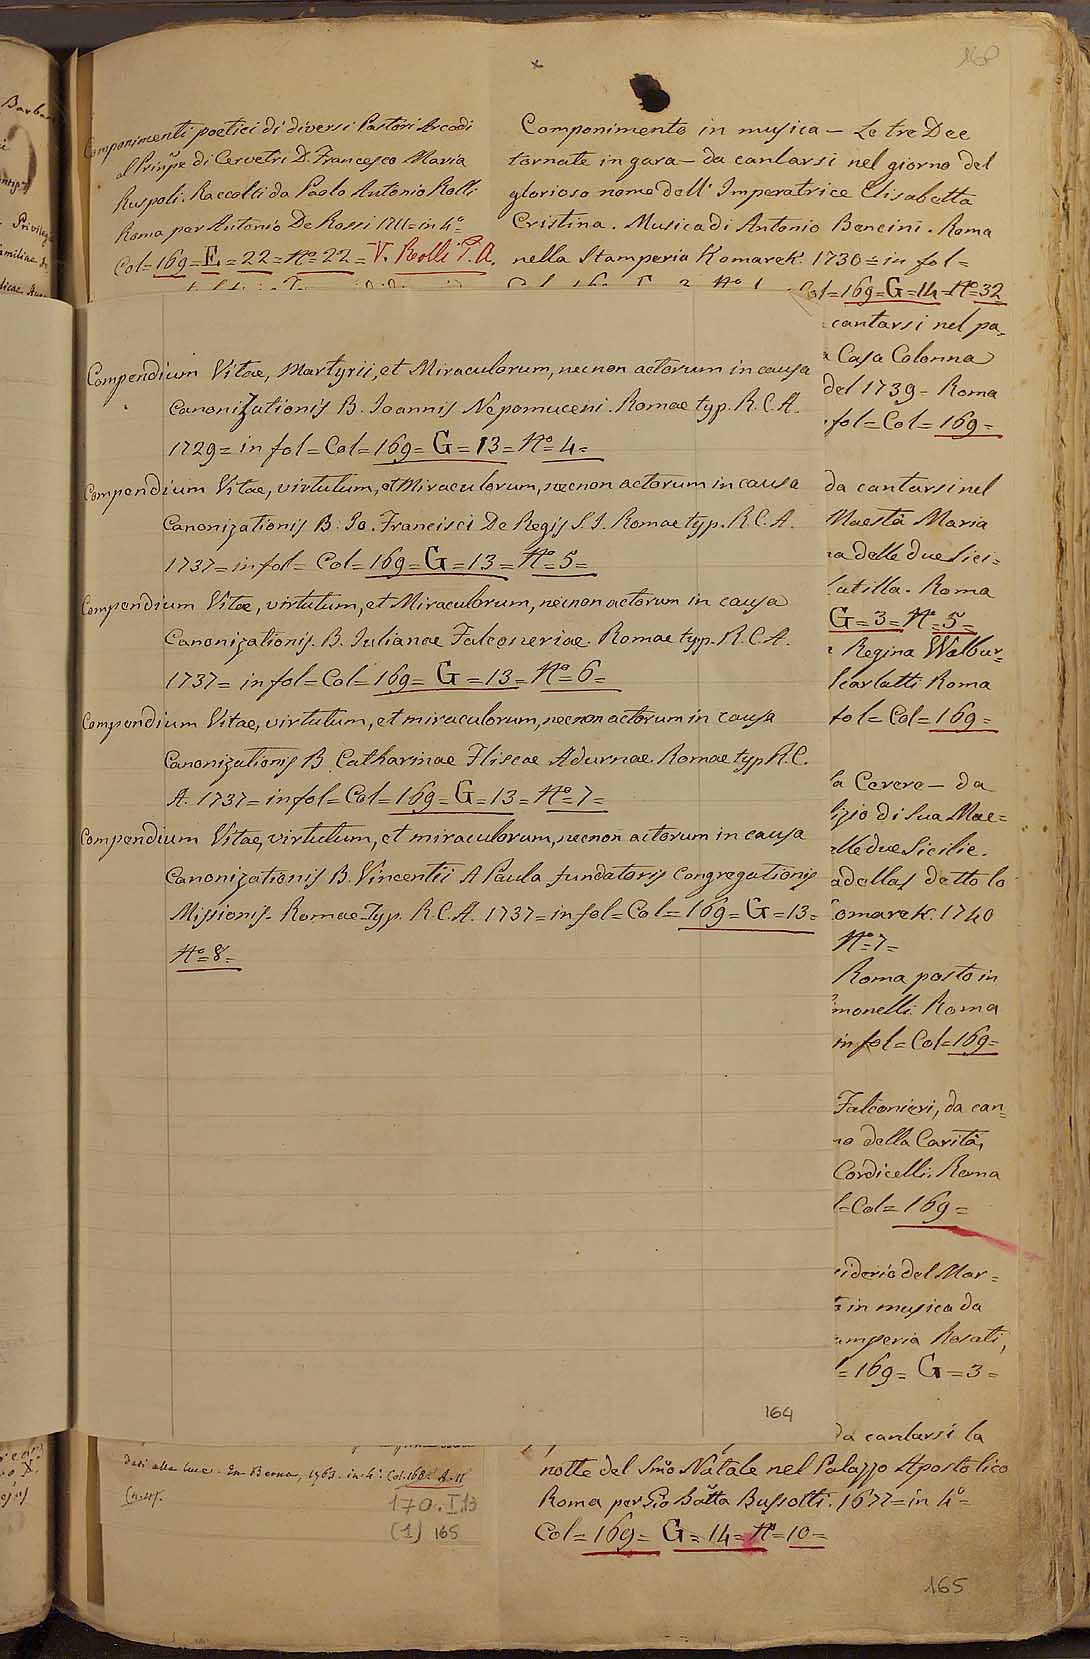 Componimenti poetici di diversi Pastori Arcadi
al Prinpe di Cervetri D. Francesco Maria
Ruspoli. Raccolti da Paolo Antonio Rolli
Roma per Antonio De Rossi 1711 = in 4°
Col = 169 = E = 22 = N° = 22 = V. Rolli P. A.
Componimento in musica — Le tre Dee
tornate in gara — da cantarsi nel giorno del
glorioso nome dell' Imperatrice Elisabetta
Cristina. Musica di Antonio Bencini. Roma
nella Stamperia Komarek. 1730 = in fol =
Col = 169 = G = 14 = N° = 32
cantarsi nel pa=
Casa Colonna
del 1739 = Roma
fol = Col = 169 =
da cantarsi nel
Maestà Maria
delle due Sici=
Roma
G = 3 = N° = 5 =
Regina Walbur=
Scarlatti Roma
fol = Col = 169 =
Cerere — da
di Sua Mae=
due Sicilie.
detto lo
Komarek. 1740
N° = 7 =
Roma posto in
Roma
in fol = Col = 169 =
Falconieri, da can=
della Carità,
Cordicelli. Roma
Col = 169 =
del Mar=
in musica da
Rosati,
= 169 = G = 3 =
da cantarsi la
notte del Smo Natale nel Palazzo Apostolico
Roma per Gio Batta Bussotti. 1677 = in 4° =
Col = 169 = G = 14 = N° = 10 =
165
Compendium Vitae, Martyrii, et Miraculorum, necnon actorum in causa
Canonizationis B. Joannis Nepomuceni. Romae typ. R. C. A.
1729 = in fol = Col = 169 = G = 13 = N° = 4 =
Compendium Vitae, virtutum, et Miraculorum, necnon actorum in causa
Canonizationis B. Jo. Francisci De Regis S. J. Romae typ. R. C. A.
1737 = in fol = Col = 169 = G = 13 = N° = 5 =
Compendium Vitae, virtutum, et Miraculorum, necnon actorum in causa
Canonizationis. B. Julianae Falconeriae. Romae typ. R. C. A.
1737 = in fol = Col = 169 = G = 13 = N° = 6 =
Compendium Vitae, virtutum, et miraculorum, necnon actorum in causa
Canonizationis B. Catharinae Fliscae Adurnae. Romae typ R. C.
A. 1737 = in fol = Col = 169 = G = 13 = N° = 7 =
Compendium Vitae, virtutum, et miraculorum, necnon actorum in causa
Canonizationis B. Vincentii A Paula fundatoris Congregationis
Missionis. Romae Typ. R. C. A. 1737 = in fol = Col = 169 = G = 13 =
N° = 8 =
164
dati alla luce. In Berna, 1761. in 4°. Col. 168. A. 11
170. I. 13
(1) 165